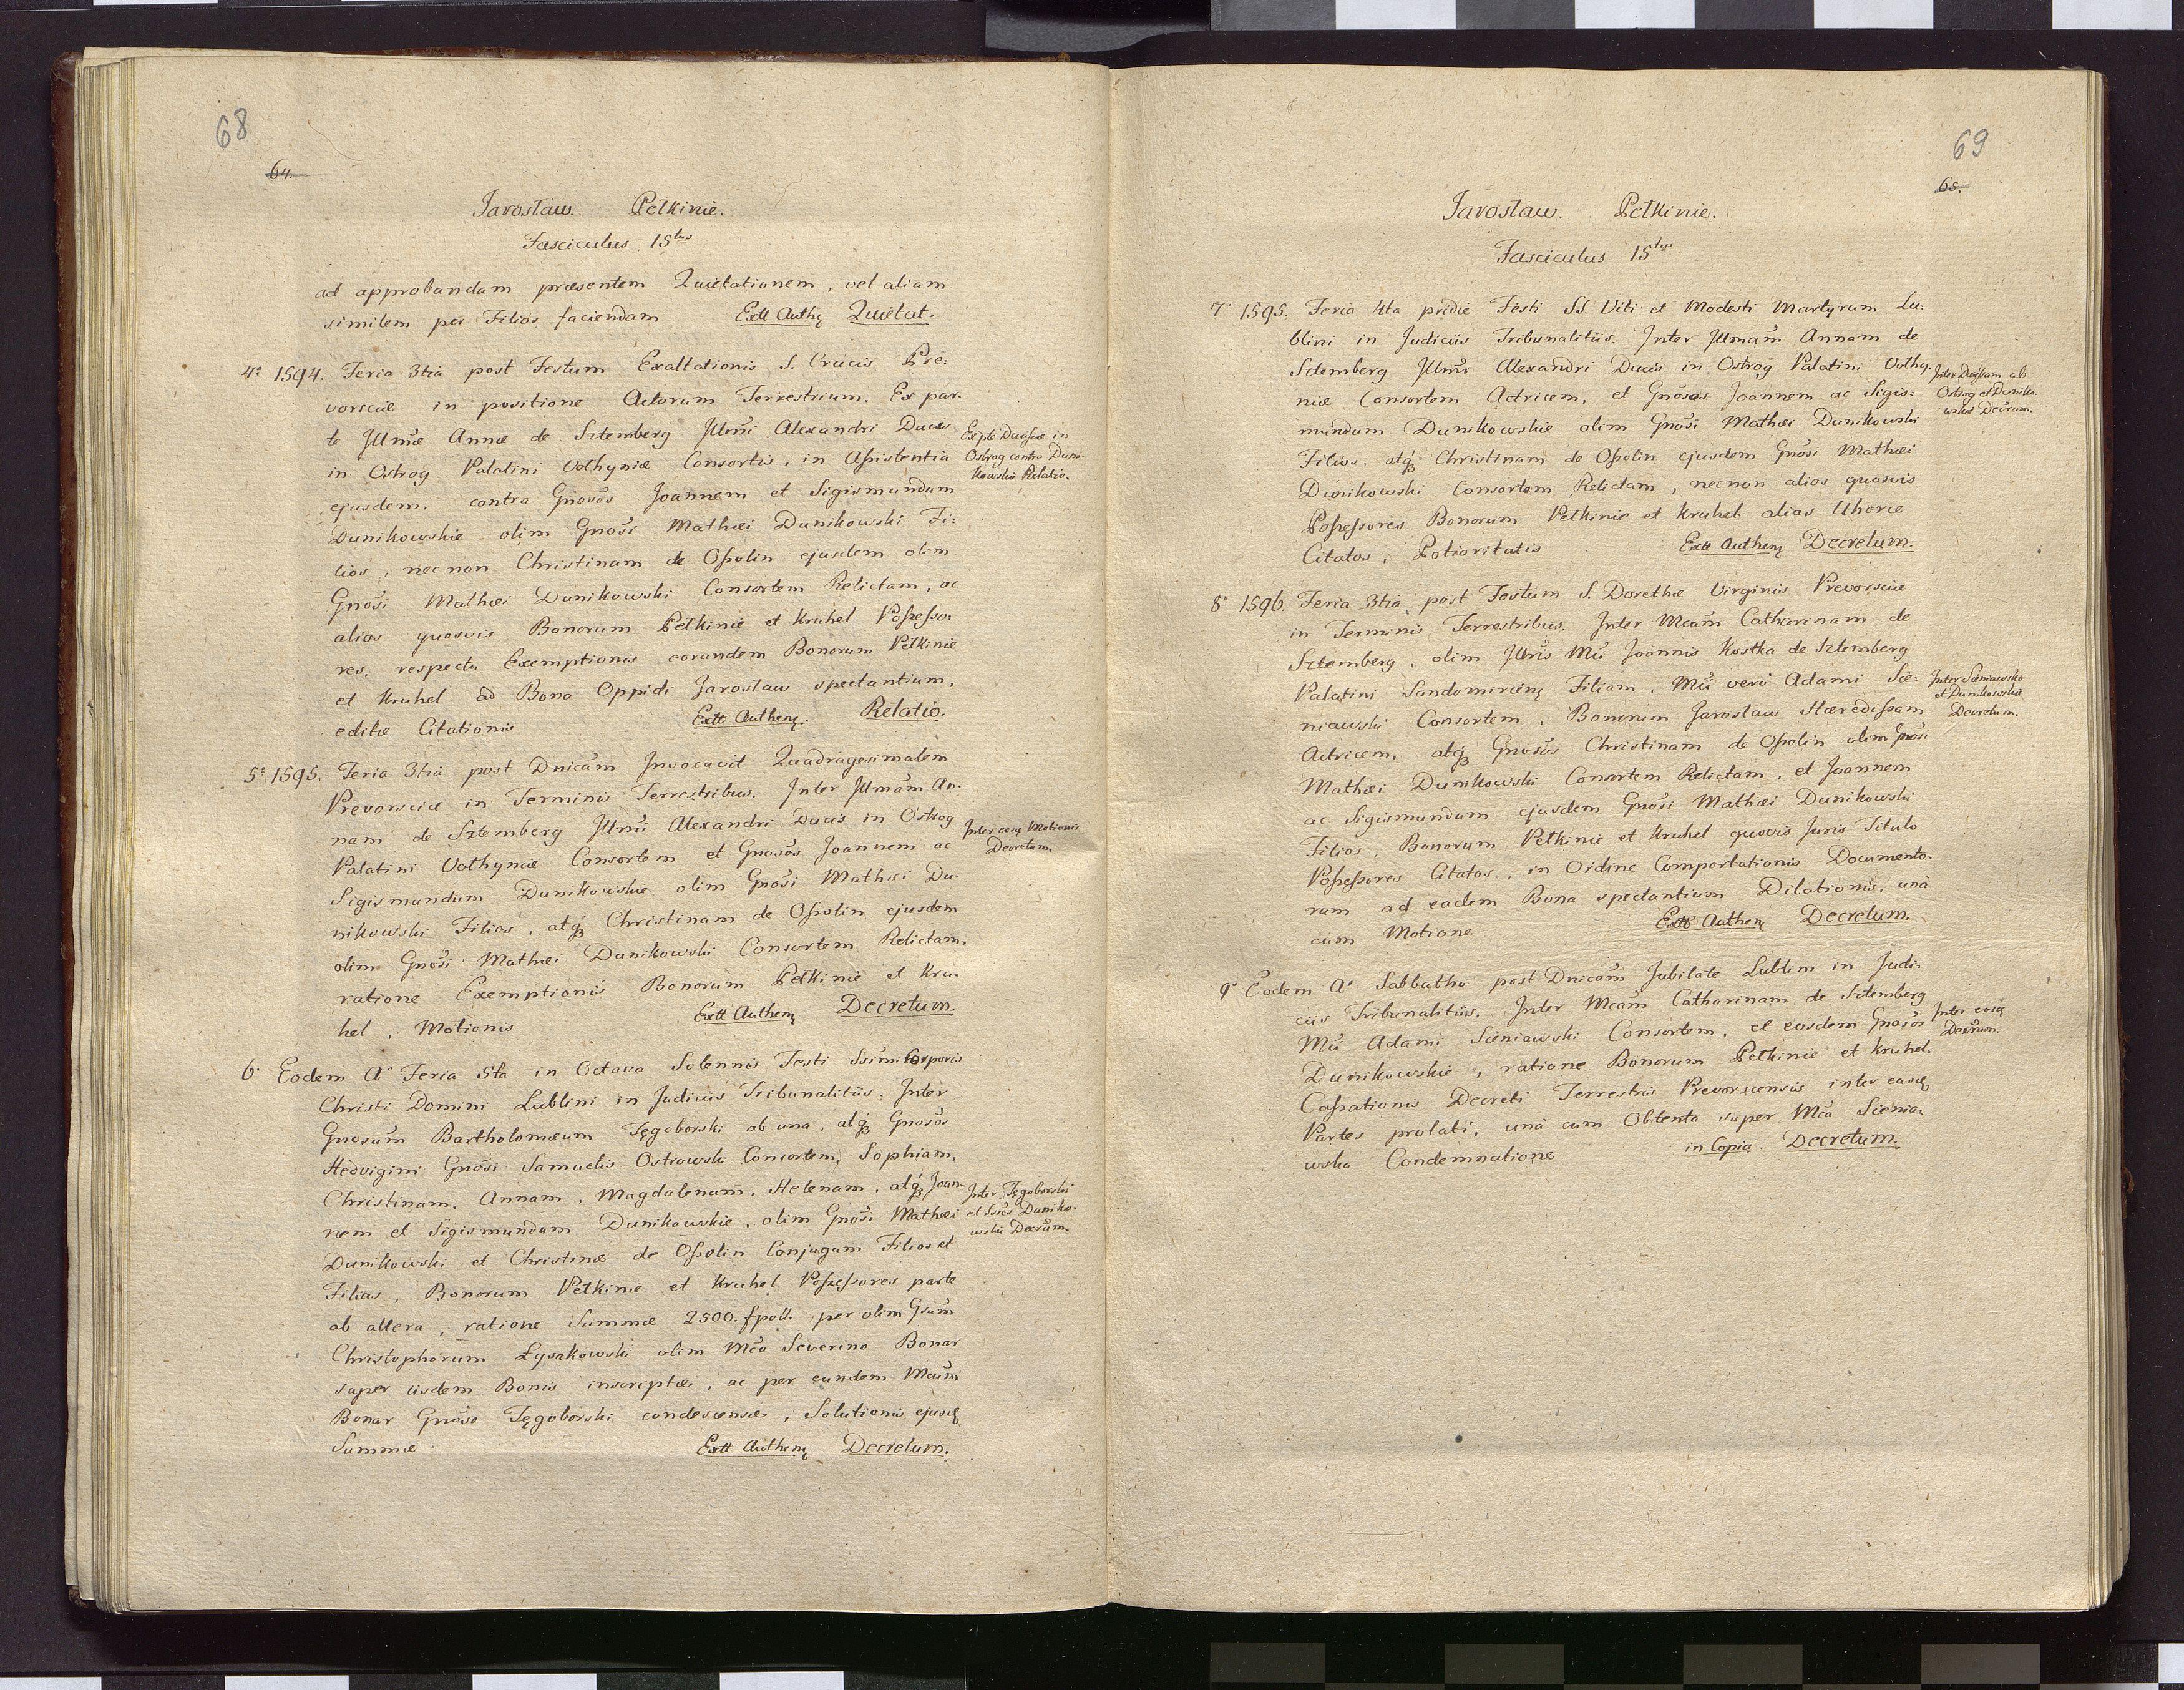 68
64.
Jarosław. Pełkinie.
Fasciculus 15tus
ad approbandam præsentem Quietationem, vel aliam
similem per Filios faciendam Extt Authę Quietat.
4o 1594. Feria 3tia post Festum Exaltationis S. Crucis Pre-
vorsciæ in positione Actorum Terrestrium. Ex par-
te Jllmæ Annæ de Sztemberg Jllmi Alexandri Ducis
in Ostrog Palatini Vołhyniæ Consortis, in Aßistentia
ejusdem. contra Gnosos Joannem et Sigismundum
Dunikowskie olim Gnosi Mathæi Dunikowski Fi-
lios, nec non Christinam de Oßolin ejusdem olim
Gnosi Mathæi Dunikowski Consortem Relictam, ac
alios quosvis Bonorum Pełkinie et Kruhel Poßeßo-
res, respectu Exemptionis eorundem Bonorum Pełkinie
et Kruhel ad Bona Oppidi Jarosław spectantium,
editæ Citationis Extt Authenę. Relatio.
Ex pte Ducißæ in
Ostrog contra Duni-
kowskie Relatio.
5o 1595. Feria 3tia post Dnicam Jnvocavit Quadragesimalem
Prevorsciæ in Terminis Terrestribus. Jnter Jllmam An-
nam de Sztemberg Jllmi Alexandri Ducis in Ostrog
Palatini Vołhyniæ Consortem et Gnosos Joannem ac
Sigismundum Dunikowskie olim Gnosi Mathæi Du-
nikowski Filios, atqz Christinam de Oßolin ejusdem
olim Gnosi Mathæi Dunikowski Consortem Relictam,
ratione Exemptionis Bonorum Pełkinie et Kru-
hel, Motionis Extt Authenę Decretum.
Jnter eosq Motionis
Decretum.
6o Eodem Ao Feria 5ta in Octava Solennis Festi Ssimi Corporis
Christi Domini Lublini in Judiciis Tribunalitiis. Jnter
Gnosum Bartholomæum Tęgoborski ab una, atqz Gnosos
Hedvigim Gnosi Samuelis Ostrowski Consortem, Sophiam,
Christinam, Annam, Magdalenam, Helenam, atqz Joan-
nem et Sigismundum Dunikowskie, olim Gnosi Mathæi
Dunikowski et Christinæ de Oßolin Conjugum Filios et
Filias, Bonorum Pełkinie et Kruhel Poßeßores parte
ab altera, ratione Summæ 2500. fpoll. per olim Gsum
Christophorum Łysakowski olim Mco Severino Bonar
super iisdem Bonis inscriptæ, ac per eundem Mcum
Bonar Gnoso Tęgoborski condescensæ, Solutionis ejusd
Summæ Extt Authenę Decretum.
Jnter Tęgoborski
et Ssres Duniko-
wskie Decrum.
69
65.
Jarosław. Pełkinie.
Fasciculus 15tus
7o 1595. Feria 4ta pridie Festi SS. Viti et Modesti Martyrum Lu-
blini in Judiciis Tribunalitiis. Jnter Jllmam Annam de
Sztemberg Jllmi Alexandri Ducis in Ostrog Palatini Vołhy-
niæ Consortem Actricem, et Gnosos Joannem ac Sigis-
mundum Dunikowskie olim Gnosi Mathæi Dunikowski
Filios, atqz Christinam de Oßolin ejusdem Gnosi Mathæi
Dunikowski Consortem Relictam, necnon alios quosvis
Poßeßores Bonorum Pełkinie et Kruhel alias Uherce
Citatos, Potioritatis Extt Authenę Decretum.
Jnter Ducißam ab
Ostrog et Duniko-
wskie Decrum.
8o 1596. Feria 3tia post Festum S. Dorethæ Virginis Prevorsciæ
in Terminis Terrestribus. Jnter Mcam Catharinam de
Sztemberg, olim Jllris Mci Joannis Kostka de Sztemberg
Palatini Sandomirienę Filiam, Mci vero Adami Sie-
niawski Consortem, Bonorum Jarosław Hæredißam
Actricem, atqz Gnosos Christinam de Oßolin olim Gnosi
Mathæi Dunikowski Consortem Relictam, et Joannem
ac Sigismundum ejusdem Gnosi Mathæi Dunikowski
Filios, Bonorum Pełkinie et Kruhel quovis Juris Titulo
Poßeßores Citatos, in Ordine Comportationis Documento-
rum ad eadem Bona spectantium Dilationis, unà
cum Motione Extt Authenę Decretum.
Jnter Sieniawska
et Dunikowskie
Decretum.
9o Eodem Ao Sabbatho post Dnicam Jubilate Lublini in Judi-
ciis Tribunalitiis. Jnter Mcam Catharinam de Sztemberg
Mci Adami Sieniawski Consortem, et eosdem Gnosos
Dunikowskie, ratione Bonorum Pełkinie et Kruhel,
Caßationis Decreti Terrestris Prevorscensis inter easd
Partes prolati, unà cum Obtenta super Mca Sienia-
wska Condemnatione in Copia. Decretum.
Jnter eosq
Decrum.